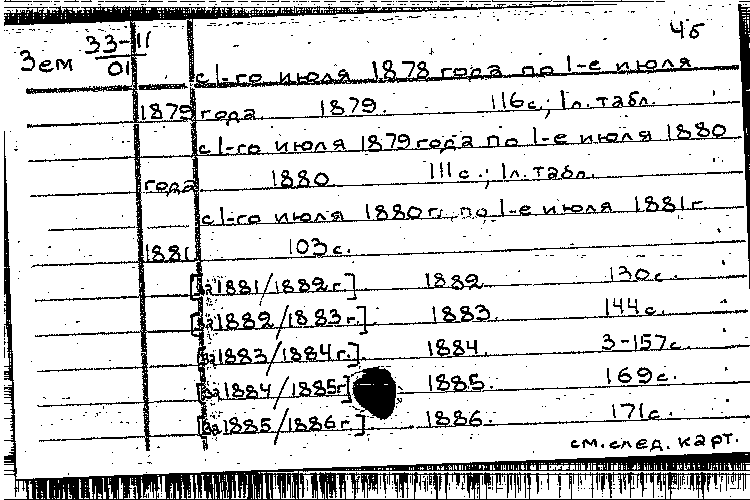 4б
Зем 33-11
01
с 1-го июля 1878 года по 1-е июля
1879 года. 1879. 116с; 1л. табл.
с 1-го июля 1879 года по 1-е июля 1880
года. 1880. 111с.; 1л. табл.
с 1-го июля 1880г. по 1-е июля 1881г.
1881. 103с.
[за 1881/1882г.]. 1882. 130с.
[за 1882/1883г.]. 1883. 144с.
[за 1883/1884г.]. 1884. 3-157с.
[за 1884/1885г]. 1885. 169с.
[за 1885/1886г.]. 1886. 171с.
см. след. карт.